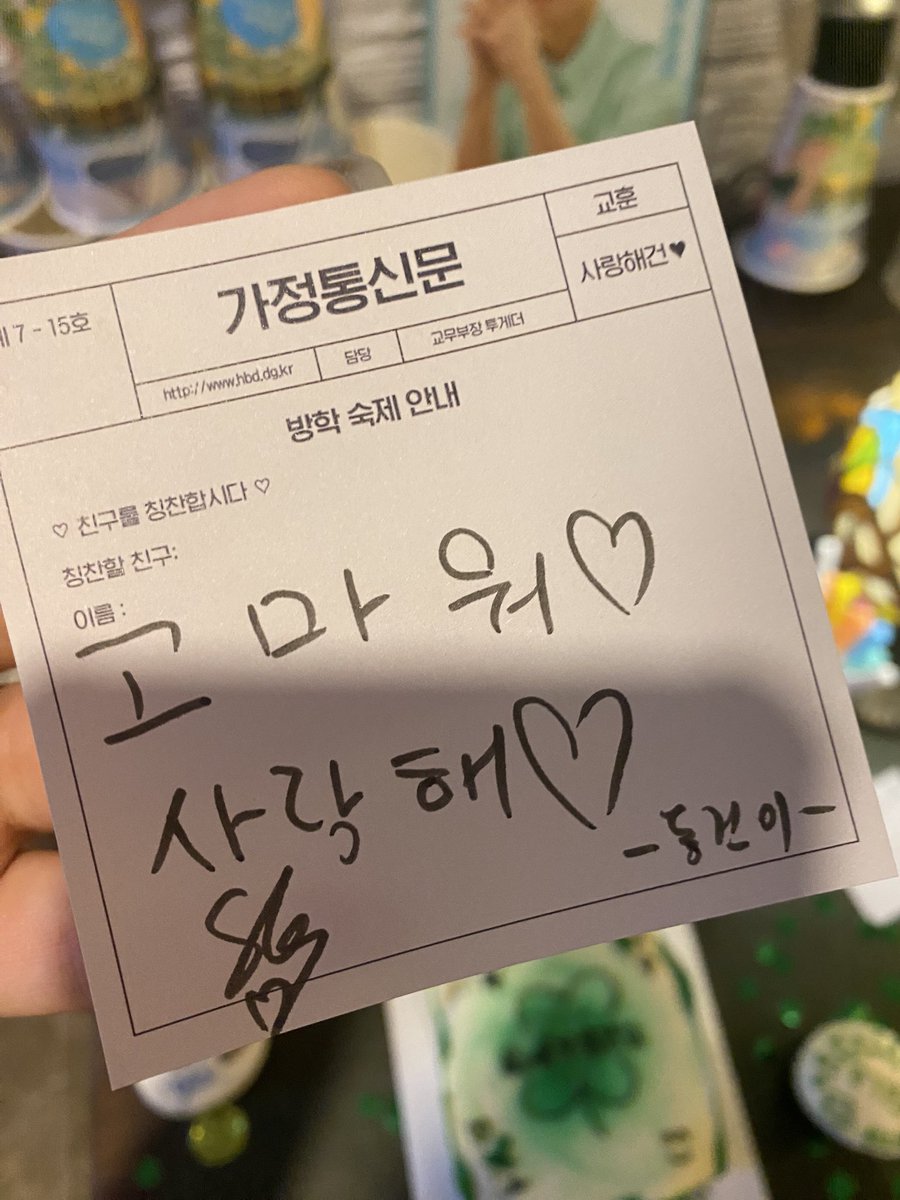 제 7 - 15호
가정통신문
교훈
사랑해건♥
http://www.hbd.dg.kr
담당
교무부장 투게더
방학 숙제 안내
♡ 친구를 칭찬합시다 ♡
칭찬할 친구:
이름 :
고마워♡
사랑해♡
-동건이-